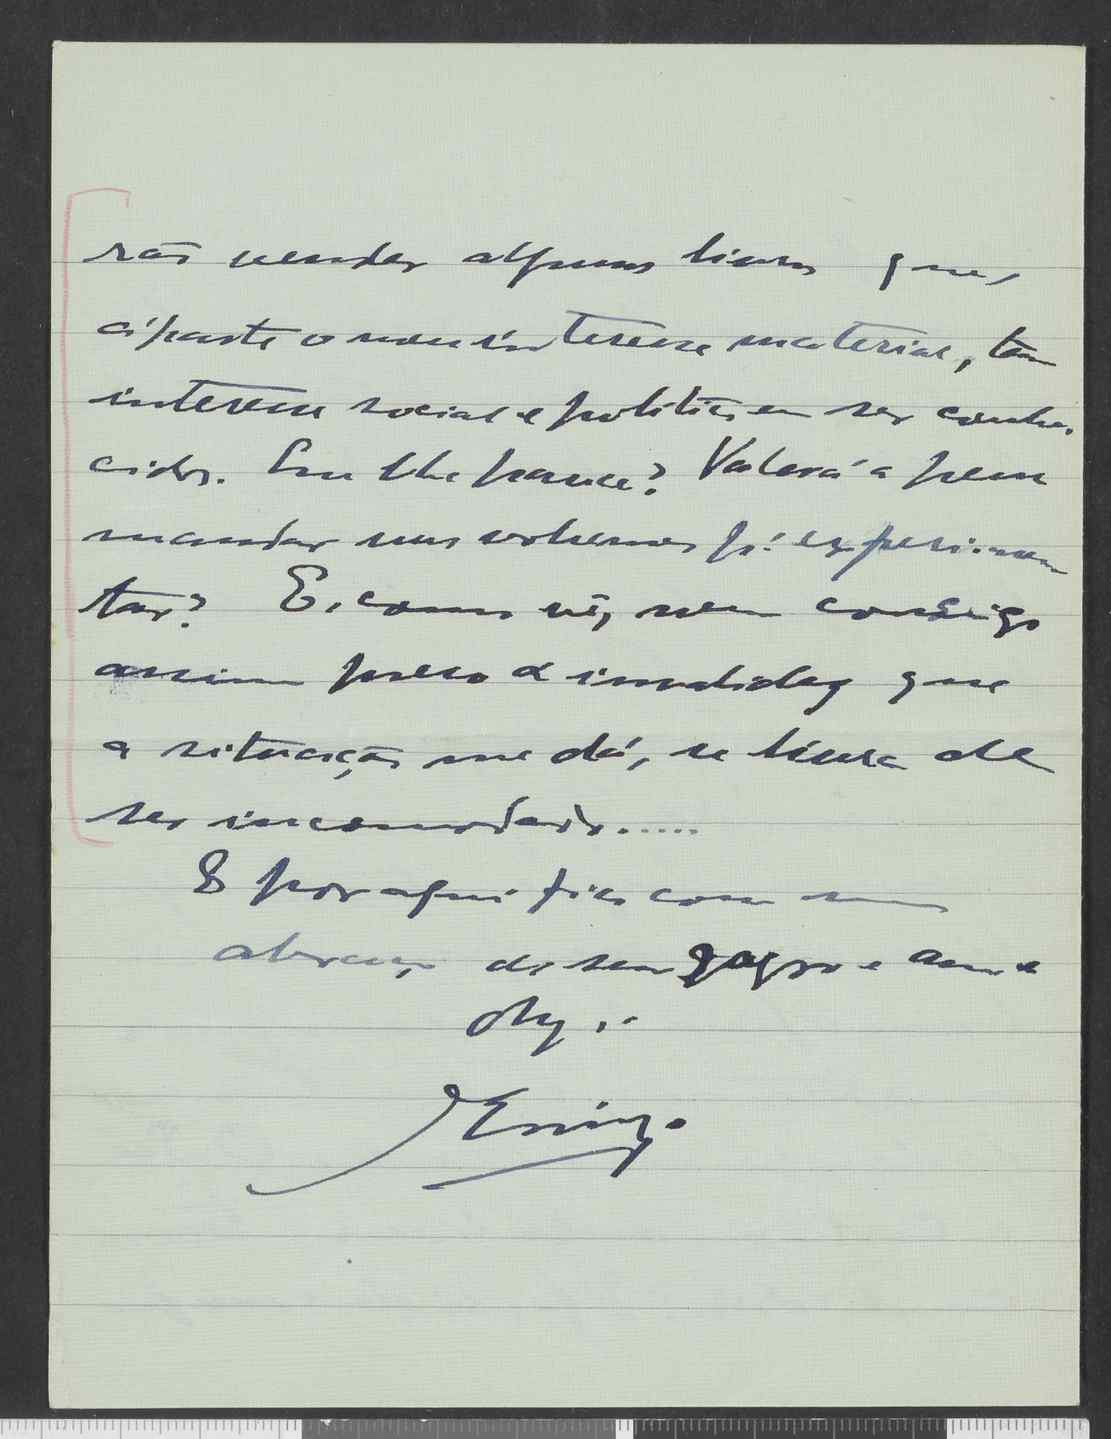 rão vender alguns livros que,
àparte o meu interesse material, tem
interesse social e politico em ser conhe-
cidos. Que lhe parece? Valerá a pena
mandar uns volumes p.ª experimen
tar? E, como vê, nem consigo
assim preso á invalidez que
a situação me dá, se livra de
ser incomodado.....
E por aqui fico com um
abraço do seu e am.º
obg.º